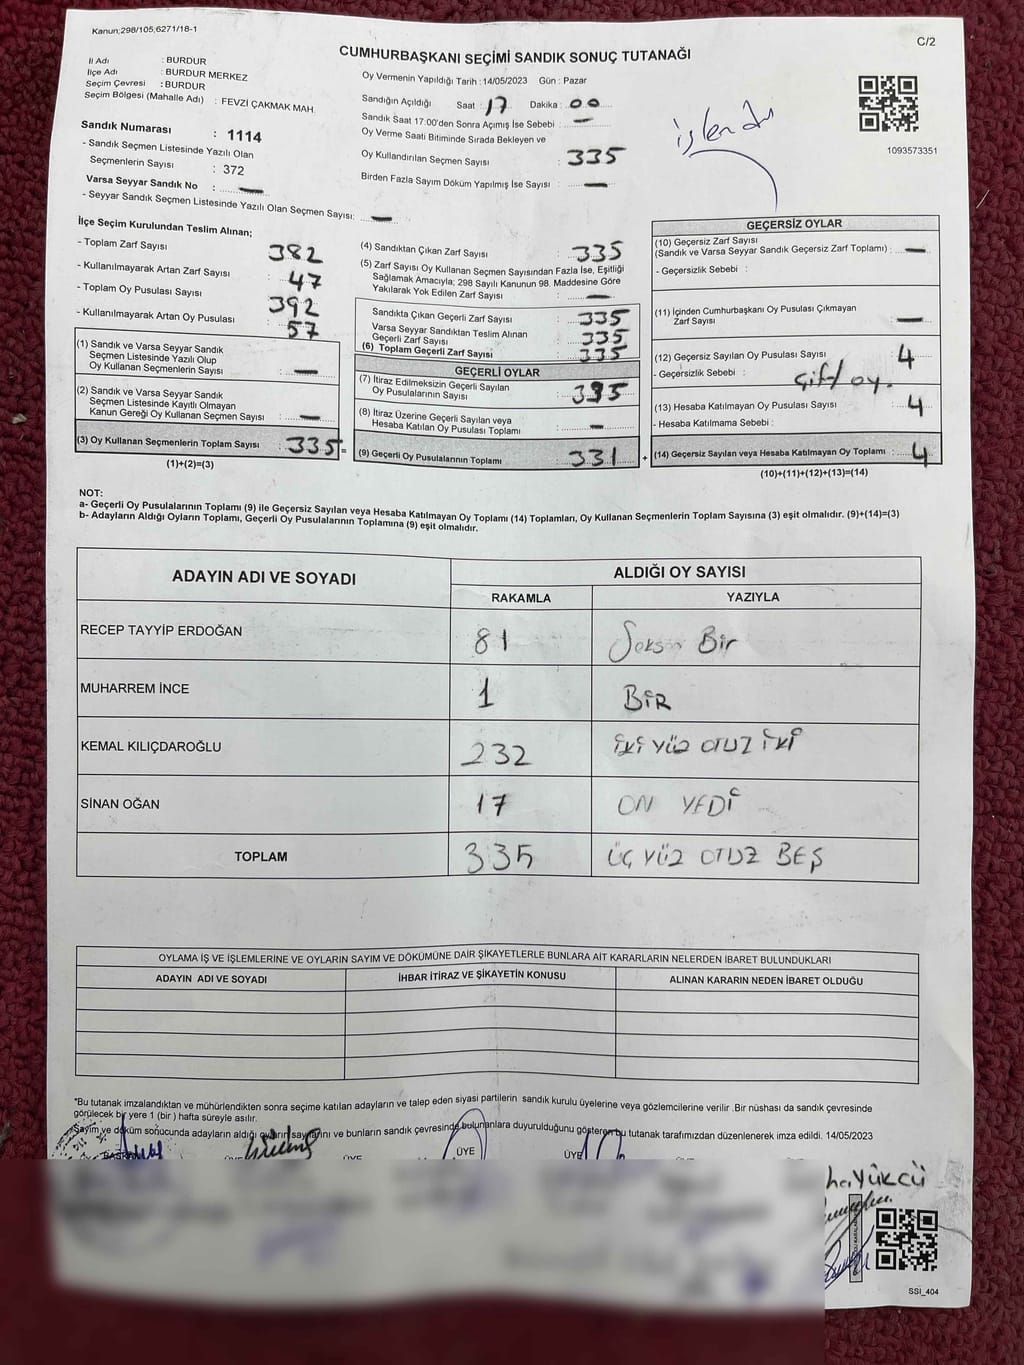 Kanun;298/105;6271/18-1
C/2
CUMHURBAŞKANI SEÇİMİ SANDIK SONUÇ TUTANAĞI
İl Adı : BURDUR
İlçe Adı : BURDUR MERKEZ
Seçim Çevresi : BURDUR
Seçim Bölgesi (Mahalle Adı) : FEVZİ ÇAKMAK MAH.
Sandık Numarası : 1114
- Sandık Seçmen Listesinde Yazılı Olan
Seçmenlerin Sayısı : 372
Varsa Seyyar Sandık No : —
- Seyyar Sandık Seçmen Listesinde Yazılı Olan Seçmen Sayısı: —
Oy Vermenin Yapıldığı Tarih : 14/05/2023 Gün : Pazar
Sandığın Açıldığı Saat : 17 Dakika : 00
Sandık Saat 17:00'den Sonra Açımış İse Sebebi : —
Oy Verme Saati Bitiminde Sırada Bekleyen ve
Oy Kullandırılan Seçmen Sayısı : 335
Birden Fazla Sayım Döküm Yapılmış İse Sayısı : —
işlendi
1093573351
İlçe Seçim Kurulundan Teslim Alınan;
- Toplam Zarf Sayısı 382
- Kullanılmayarak Artan Zarf Sayısı 47
- Toplam Oy Pusulası Sayısı 392
- Kullanılmayarak Artan Oy Pusulası 57
(1) Sandık ve Varsa Seyyar Sandık
Seçmen Listesinde Yazılı Olup
Oy Kullanan Seçmenlerin Sayısı : —
(2) Sandık ve Varsa Seyyar Sandık
Seçmen Listesinde Kayıtlı Olmayan
Kanun Gereği Oy Kullanan Seçmen Sayısı : —
(3) Oy Kullanan Seçmenlerin Toplam Sayısı : 335 =
(1)+(2)=(3)
(4) Sandıktan Çıkan Zarf Sayısı : 335
(5) Zarf Sayısı Oy Kullanan Seçmen Sayısından Fazla İse, Eşitliği
Sağlamak Amacıyla; 298 Sayılı Kanunun 98. Maddesine Göre
Yakılarak Yok Edilen Zarf Sayısı : —
Sandıkta Çıkan Geçerli Zarf Sayısı : 335
Varsa Seyyar Sandıktan Teslim Alınan
Geçerli Zarf Sayısı : 335
(6) Toplam Geçerli Zarf Sayısı : 335
GEÇERLİ OYLAR
(7) İtiraz Edilmeksizin Geçerli Sayılan
Oy Pusulalarının Sayısı : 335
(8) İtiraz Üzerine Geçerli Sayılan veya
Hesaba Katılan Oy Pusulası Toplamı : —
(9) Geçerli Oy Pusulalarının Toplamı 331 +
GEÇERSİZ OYLAR
(10) Geçersiz Zarf Sayısı
(Sandık ve Varsa Seyyar Sandık Geçersiz Zarf Toplamı) : —
- Geçersizlik Sebebi :
(11) İçinden Cumhurbaşkanı Oy Pusulası Çıkmayan
Zarf Sayısı —
(12) Geçersiz Sayılan Oy Pusulası Sayısı 4
- Geçersizlik Sebebi : Çift oy.
(13) Hesaba Katılmayan Oy Pusulası Sayısı 4
- Hesaba Katılmama Sebebi :
(14) Geçersiz Sayılan veya Hesaba Katılmayan Oy Toplamı : 4
(10)+(11)+(12)+(13)=(14)
NOT:
a- Geçerli Oy Pusulalarının Toplamı (9) ile Geçersiz Sayılan veya Hesaba Katılmayan Oy Toplamı (14) Toplamları, Oy Kullanan Seçmenlerin Toplam Sayısına (3) eşit olmalıdır. (9)+(14)=(3)
b- Adayların Aldığı Oyların Toplamı, Geçerli Oy Pusulalarının Toplamına (9) eşit olmalıdır.
ADAYIN ADI VE SOYADI ALDIĞI OY SAYISI
RAKAMLA YAZIYLA
RECEP TAYYİP ERDOĞAN 81 Seksen Bir
MUHARREM İNCE 1 BİR
KEMAL KILIÇDAROĞLU 232 İKİ YÜZ OTUZ İKİ
SİNAN OĞAN 17 ON YEDİ
TOPLAM 335 ÜÇ YÜZ OTUZ BEŞ
OYLAMA İŞ VE İŞLEMLERİNE VE OYLARIN SAYIM VE DÖKÜMÜNE DAİR ŞİKAYETLERLE BUNLARA AİT KARARLARIN NELERDEN İBARET BULUNDUKLARI
ADAYIN ADI VE SOYADI İHBAR İTİRAZ VE ŞİKAYETİN KONUSU ALINAN KARARIN NEDEN İBARET OLDUĞU
*Bu tutanak imzalandıktan ve mühürlendikten sonra seçime katılan adayların ve talep eden siyasi partilerin sandık kurulu üyelerine veya gözlemcilerine verilir .Bir nüshası da sandık çevresinde
görülecek bir yere 1 (bir ) hafta süreyle asılır.
Sayım ve döküm sonucunda adayların aldığı oyların sayılarını ve bunların sandık çevresinde bulunanlara duyurulduğunu gösteren bu tutanak tarafımızdan düzenlenerek imza edildi. 14/05/2023
BAŞKAN ÜYE ÜYE ÜYE ÜYE
SSI_404